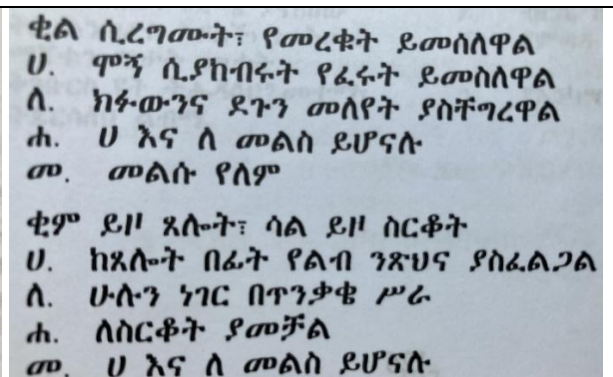 ቂል ሲረግሙት፣ የመረቁት ይመስለዋል
ሀ. ሞኝ ሲያከብሩት የፈሩት ይመስለዋል
ለ. ክፉውንና ደጉን መለየት ያስቸግረዋል
ሐ. ሀ እና ለ መልስ ይሆናሉ
መ. መልሱ የለም
ቂም ይዞ ጸሎት፣ ሳል ይዞ ስርቆት
ሀ. ከጸሎት በፊት የልብ ንጽህና ያስፈልጋል
ለ. ሁሉን ነገር በጥንቃቄ ሥራ
ሐ. ለስርቆት ያመቻል
መ. ሀ እና ለ መልስ ይሆናሉ